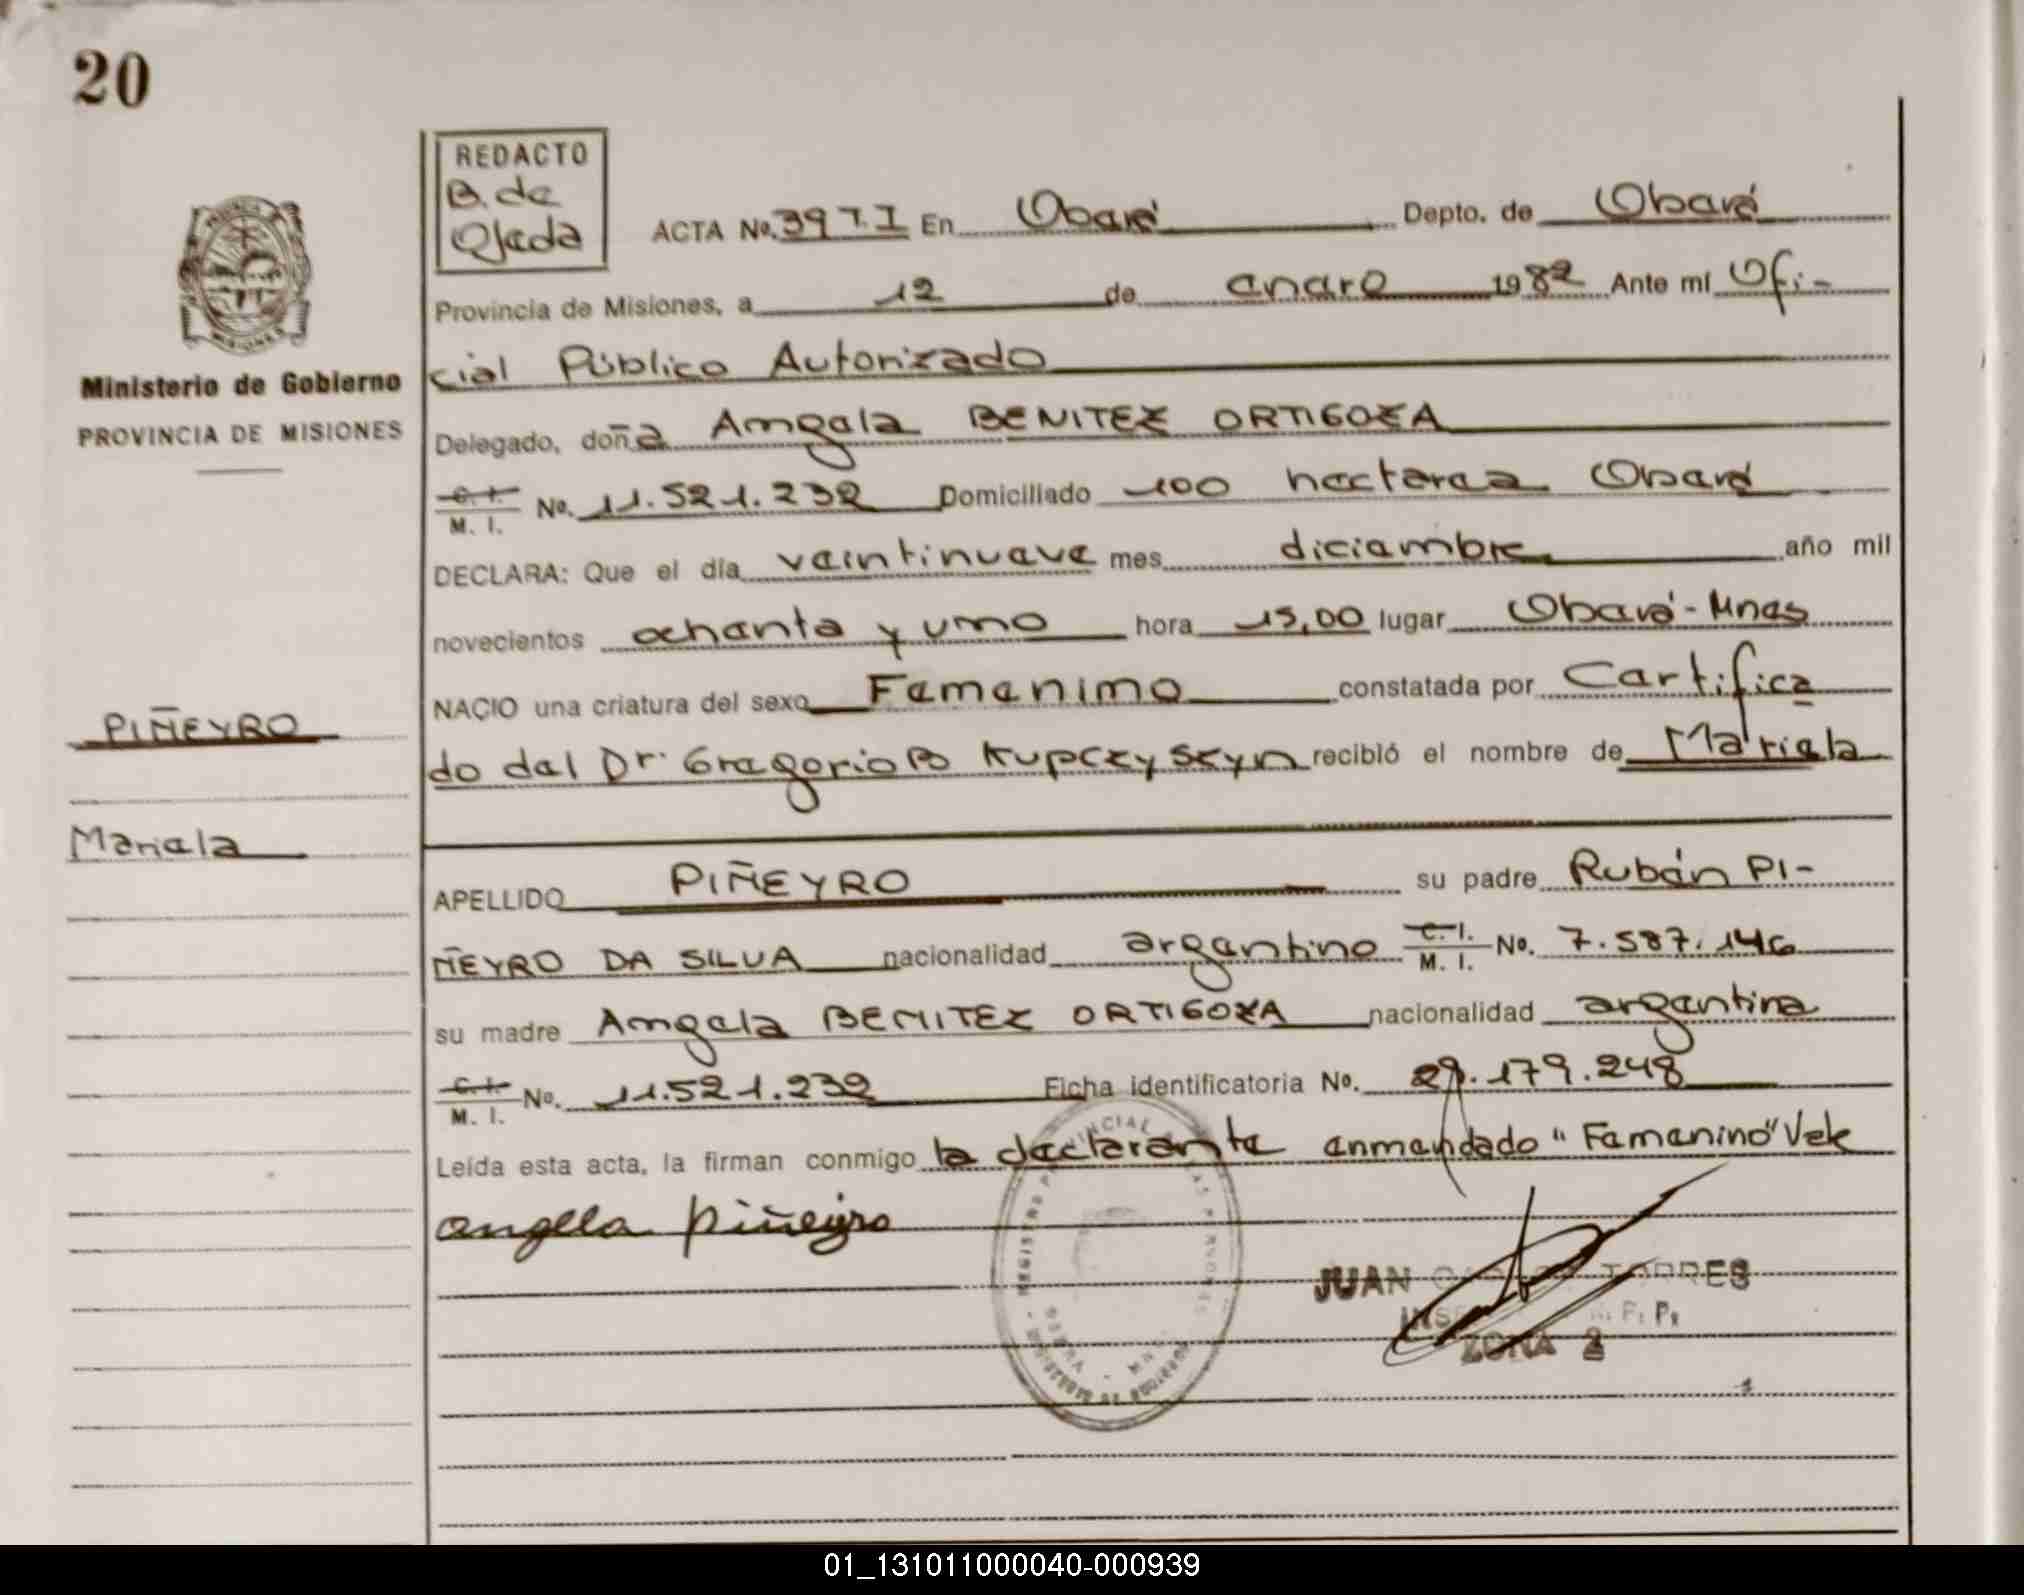 20
REDACTO
B. de
Ojeda
ACTA No. 39 T. I En Oberá Depto. de Oberá
Provincia de Misiones, a 12 de enero 1982 Ante mí Ofi-
cial Público Autorizado
Ministerio de Gobierno
PROVINCIA DE MISIONES
Delegado, doña Angela BENITEZ ORTIGOZA
C. I.
M. I. No. 11.521.232 Domiciliado 100 hectarea Oberá
DECLARA: Que el día veintinueve mes diciembre año mil
novecientos ochenta y uno hora 15,00 lugar Oberá-Mnes
NACIO una criatura del sexo Femenino constatada por Certifica
do del Dr. Gregorio B Kupczyszyn recibió el nombre de Mariela
PIÑEYRO
Mariela
APELLIDO PIÑEYRO su padre Rubén PI-
ÑEYRO DA SILVA nacionalidad argentino C. I.
M. I. No. 7.587.146
su madre Angela BENITEZ ORTIGOZA nacionalidad argentina
C. I.
M. I. No. 11.521.232 Ficha identificatoria No. 29.179.248
Leída esta acta, la firman conmigo la declarante enmendado "Femenino" Vale
angela piñeyro
REGISTRO PROVINCIAL DE LAS PERSONAS
OBERA - MNES.
MINISTERIO DE GOBIERNO
JUAN CARLOS TORRES
R. P. P.
ZONA 2
01_131011000040-000939